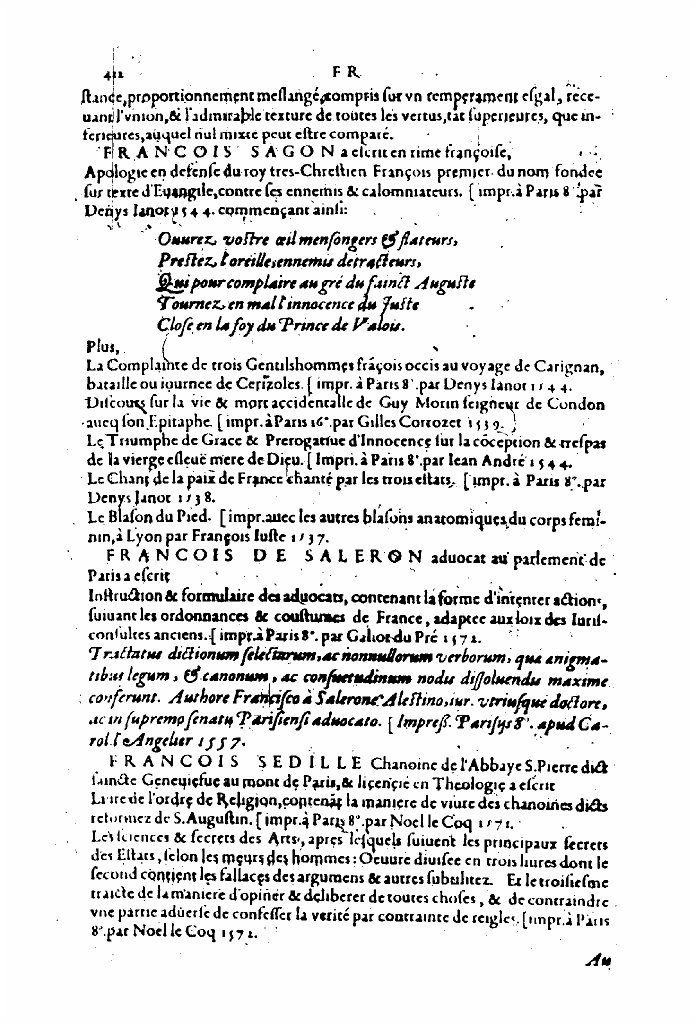 412 F R
ſtance,proportionnement meſlangé,compris ſur vn temperament eſgal, rece-
uant l'vnion,& l'admirable texture de toutes les vertus,tãt ſuperieures, que in-
ferieures,auquel nul mixte peut eſtre comparé.
FRANCOIS SAGON a eſcrit en rime françoiſe,
Apologie en defenſe du roy tres-Chreſtien François premier du nom fondee
ſur texte d'Euangile,contre ſes ennemis & calomniateurs. [impr.à Paris 8°.par
Denys Ianot 1544. commençant ainſi:
Ouurez voſtre œil menſongers & flateurs,
Preſtez l'oreille,ennemis detracteurs,
Qui pour complaire au gré du ſainct Auguſte
Tournez en mal l'innocence du Juſte
Cloſe en la foy du Prince de Valois.
Plus,
La Complainte de trois Gentilshommes frãçois occis au voyage de Carignan,
bataille ou iournee de Cerizoles. [impr. à Paris 8°.par Denys Ianot 1544.
Diſcours ſur la vie & mort accidentalle de Guy Morin ſeigneur de Condon
auec ſon Epitaphe. [impr. à Paris 16°.par Gilles Corrozet 1539.]
Le Triumphe de Grace & Prerogatiue d'Innocence ſur la cõception & treſpas
de la vierge eſleuë mere de Dieu. [Impri. à Paris 8°.par Iean André 1544.
Le Chant de la paix de France chanté par les trois eſtats. [impr. à Paris 8°.par
Denys Ianot 1538.
Le Blaſon du Pied. [impr.auec les autres blaſons anatomiques du corps femi-
nin,à Lyon par François Iuſte 1537.
FRANCOIS DE SALERON aduocat au parlement de
Paris a eſcrit
Inſtruction & formulaire des aduocats, contenant la forme d'intenter actions,
ſuiuant les ordonnances & couſtumes de France, adaptee aux loix des Iuriſ-
conſultes anciens. [impr.à Paris 8°. par Galiot du Pré 1572.
Tractatus dictionum ſelectarum, ac nonnullorum verborum, qua ænigma-
tibus legum, & canonum, ac conſuetudinum nodis diſſoluendis maxime
conferunt. Authore Franciſco à Salerone Aleſtino, iur. vtriuſque doctore,
ac in ſupremo ſenatu Pariſienſi aduocato. [Impreſſ. Pariſijs 8°. apud Ca-
rol. l'Angelier 1557.
FRANCOIS SEDILLE Chanoine de l'Abbaye S.Pierre dict
ſaincte Geneuieſue au mont de Paris,& licencié en Theologie a eſcrit
Liure de l'ordre de Religion,contenãt la maniere de viure des chanoines dicts
reformez de S.Auguſtin. [impr.à Paris 8°.par Noel le Coq 1571.
Les ſciences & ſecrets des Arts, apres leſquels ſuiuent les principaux ſecrets
des Eſtats, ſelon les mœurs des hommes: Oeuure diuiſee en trois liures dont le
ſecond contient les fallaces des argumens & autres ſubtilitez. Et le troiſieſme
traicte de la maniere d'opiner & deliberer de toutes choſes, & de contraindre
vne partie aduerſe de confeſſer la verité par contrainte de reigles. [impr.à Paris
8°.par Noel le Coq 1572.
Au